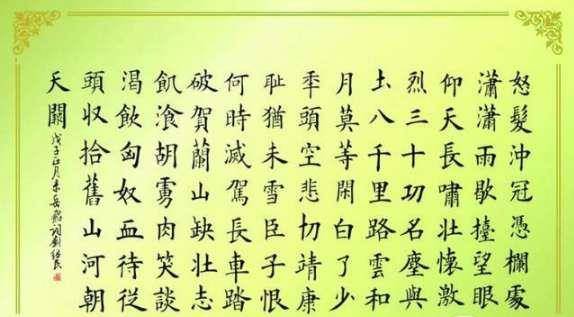 怒髮沖冠憑欄處
瀟瀟雨歇擡望眼
仰天長嘯壯懷激
烈三十功名塵與
土八千里路雲和
月莫等閑白了少
秊頭空悲切靖康
耻猶未雪臣子恨
何時滅駕長車踏
破賀蘭山缺壯志
飢湌胡虜肉笑談
渴飲匈奴血待從
頭收拾舊山河朝
天闕
戊子正月岳飛詞劉